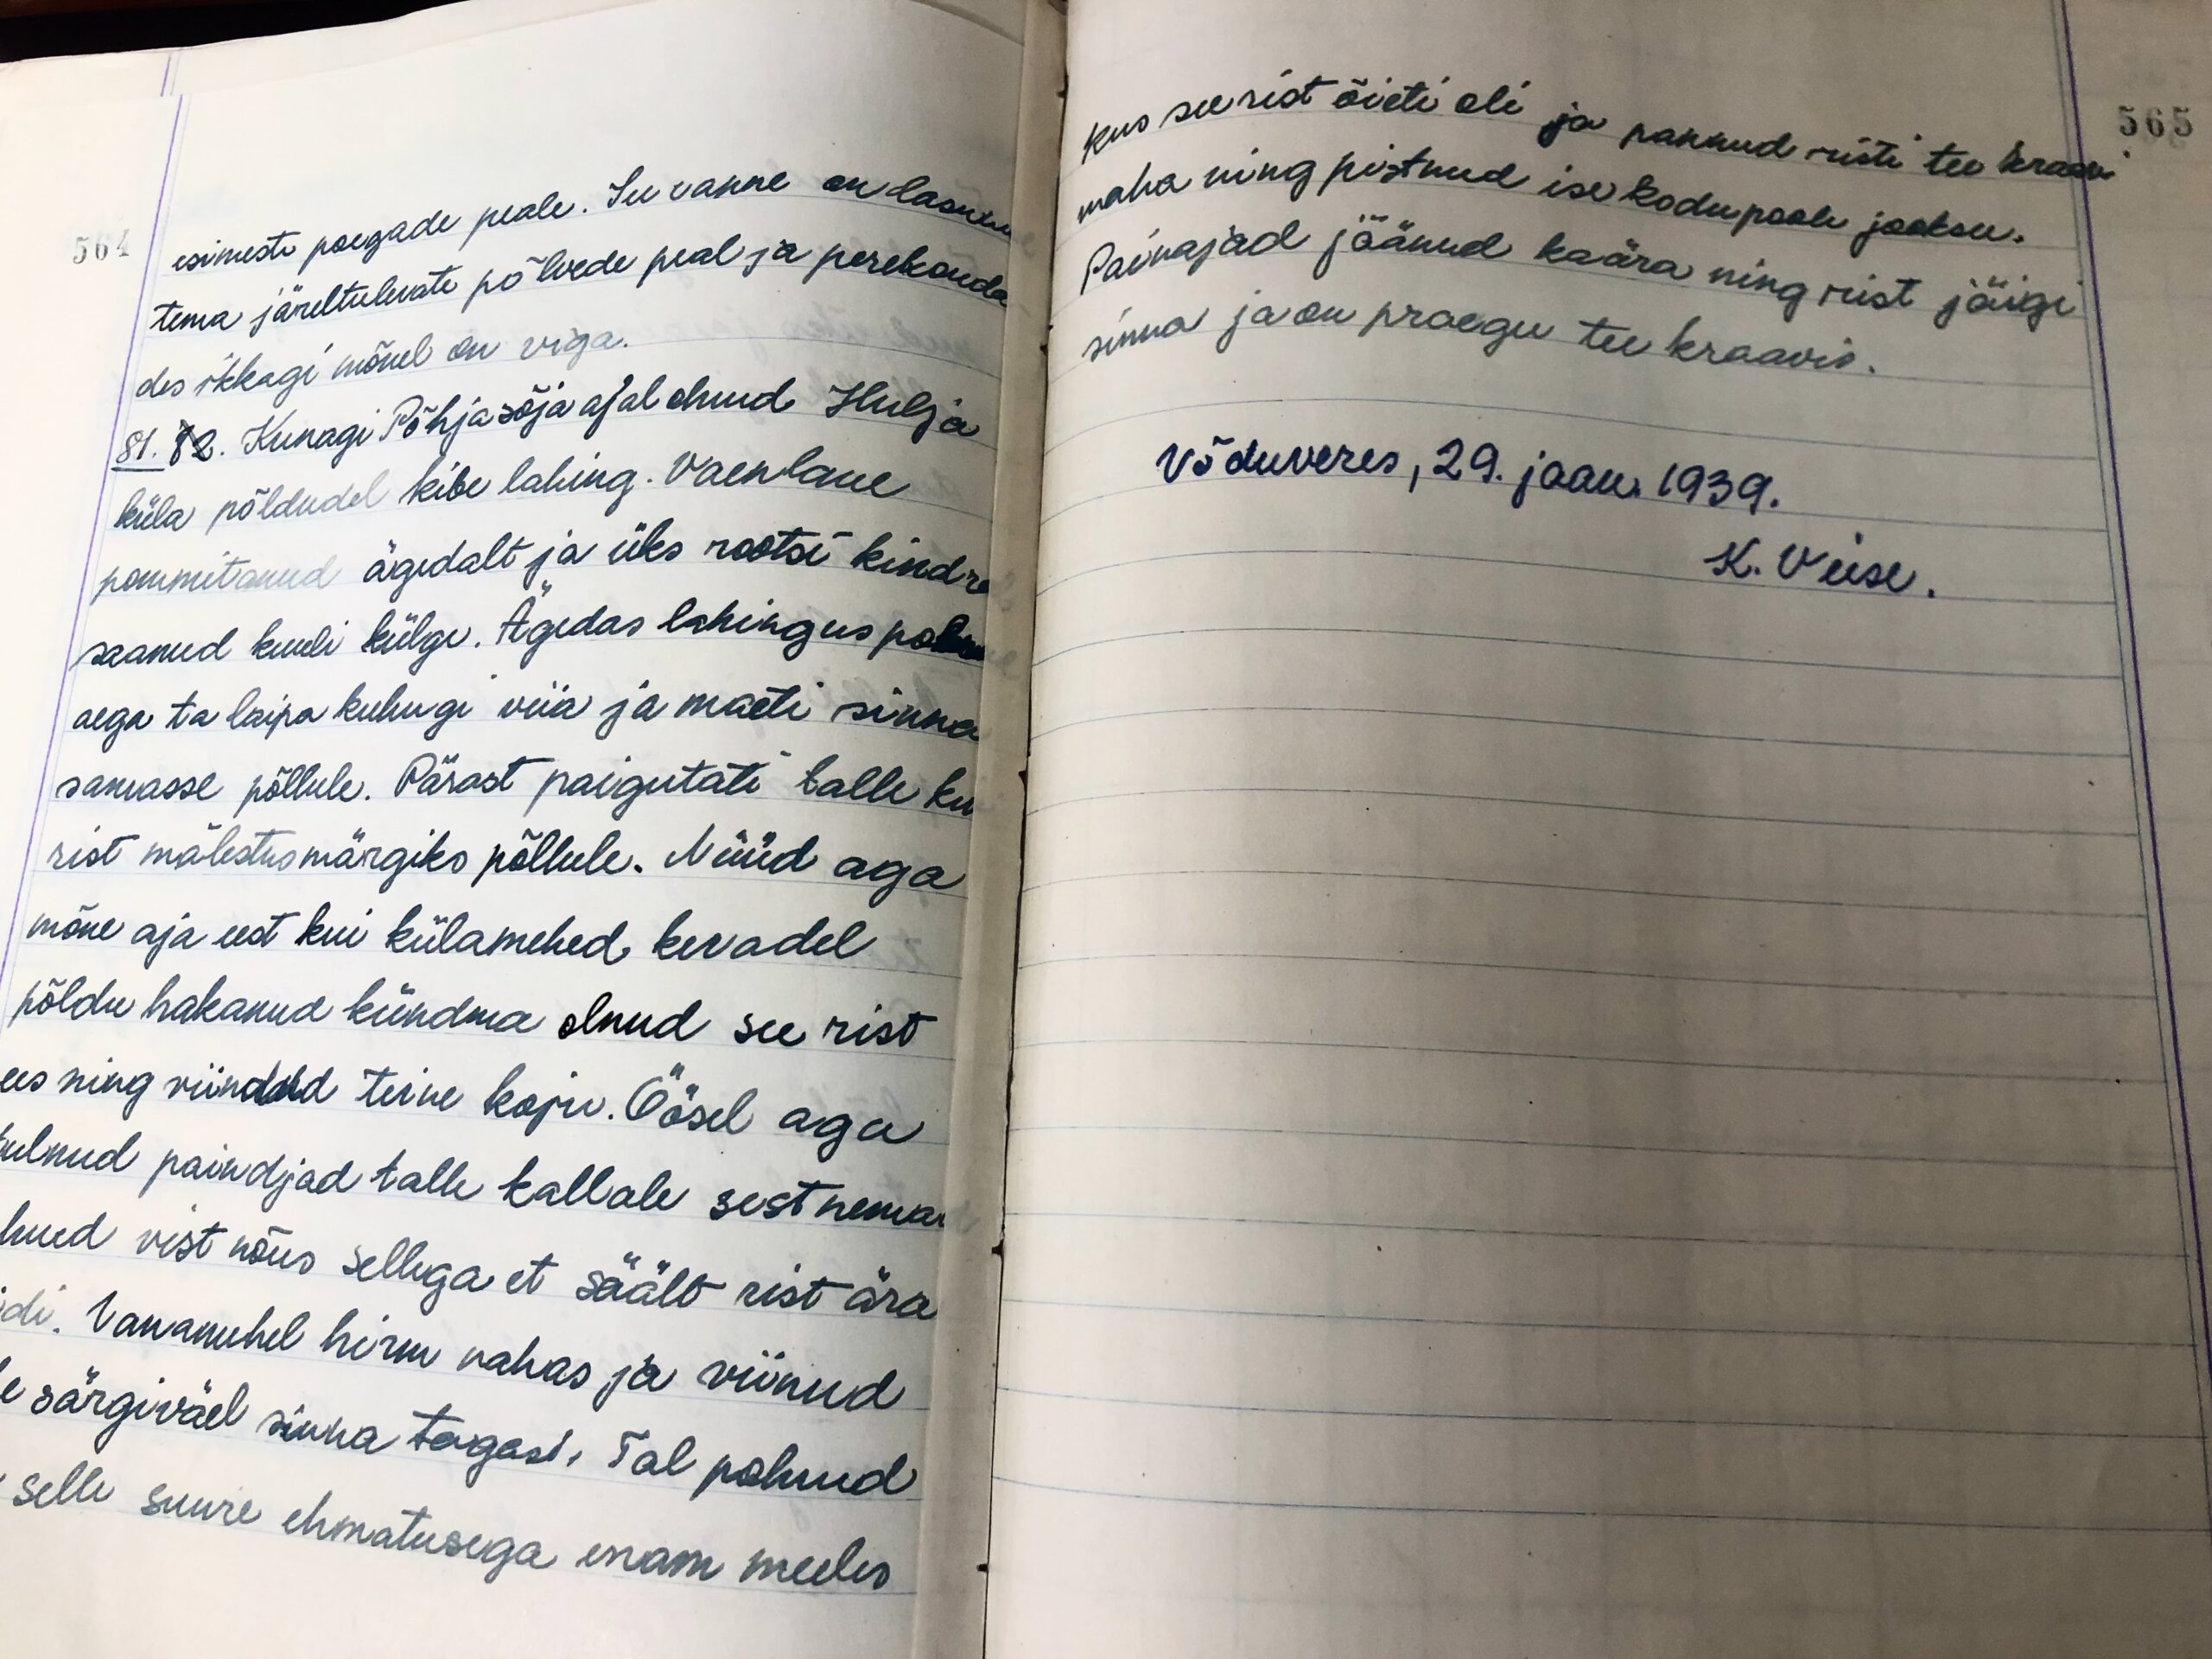 564
esimeste poegade peale. See vanne on lasunud
tema järeltulevate põlvede peal ja perekonda
des ikkagi mõnel on viga.
81. 82. Kunagi Põhjasõja ajal olnud Hulja
küla põldudel kibe lahing. Vaenlane
pommitanud ägedalt ja üks rootsi kindral
saanud kuuli külge. Ägedas lahingus polnud
aega ta laipa kuhugi viia ja maeti sinna
samasse põllule. Pärast paigutati talle
rist mälestusmärgiks põllule. Nüüd aga
mõne aja eest kui külamehed kevadel
põldu hakanud kündma olnud see rist
ees ning viinud teine koju. Öösel aga
tulnud paindjad talle kallale sest nemad
vist nõus sellega et säält rist ära
Vanamehel hirm nahas ja viinud
särgiväel sinna tagasi. Tal polnud
selle suure ehmatusega enam meeles
565
kus see rist õieti oli ja pannud risti tee kraavi
maha ning pistnud ise kodu poole jooksu.
Painajad jäänud ka ära ning rist jäigi
sinna ja on praegu tee kraavis.
Võduveres, 29. jaan. 1939.
K. Viise.